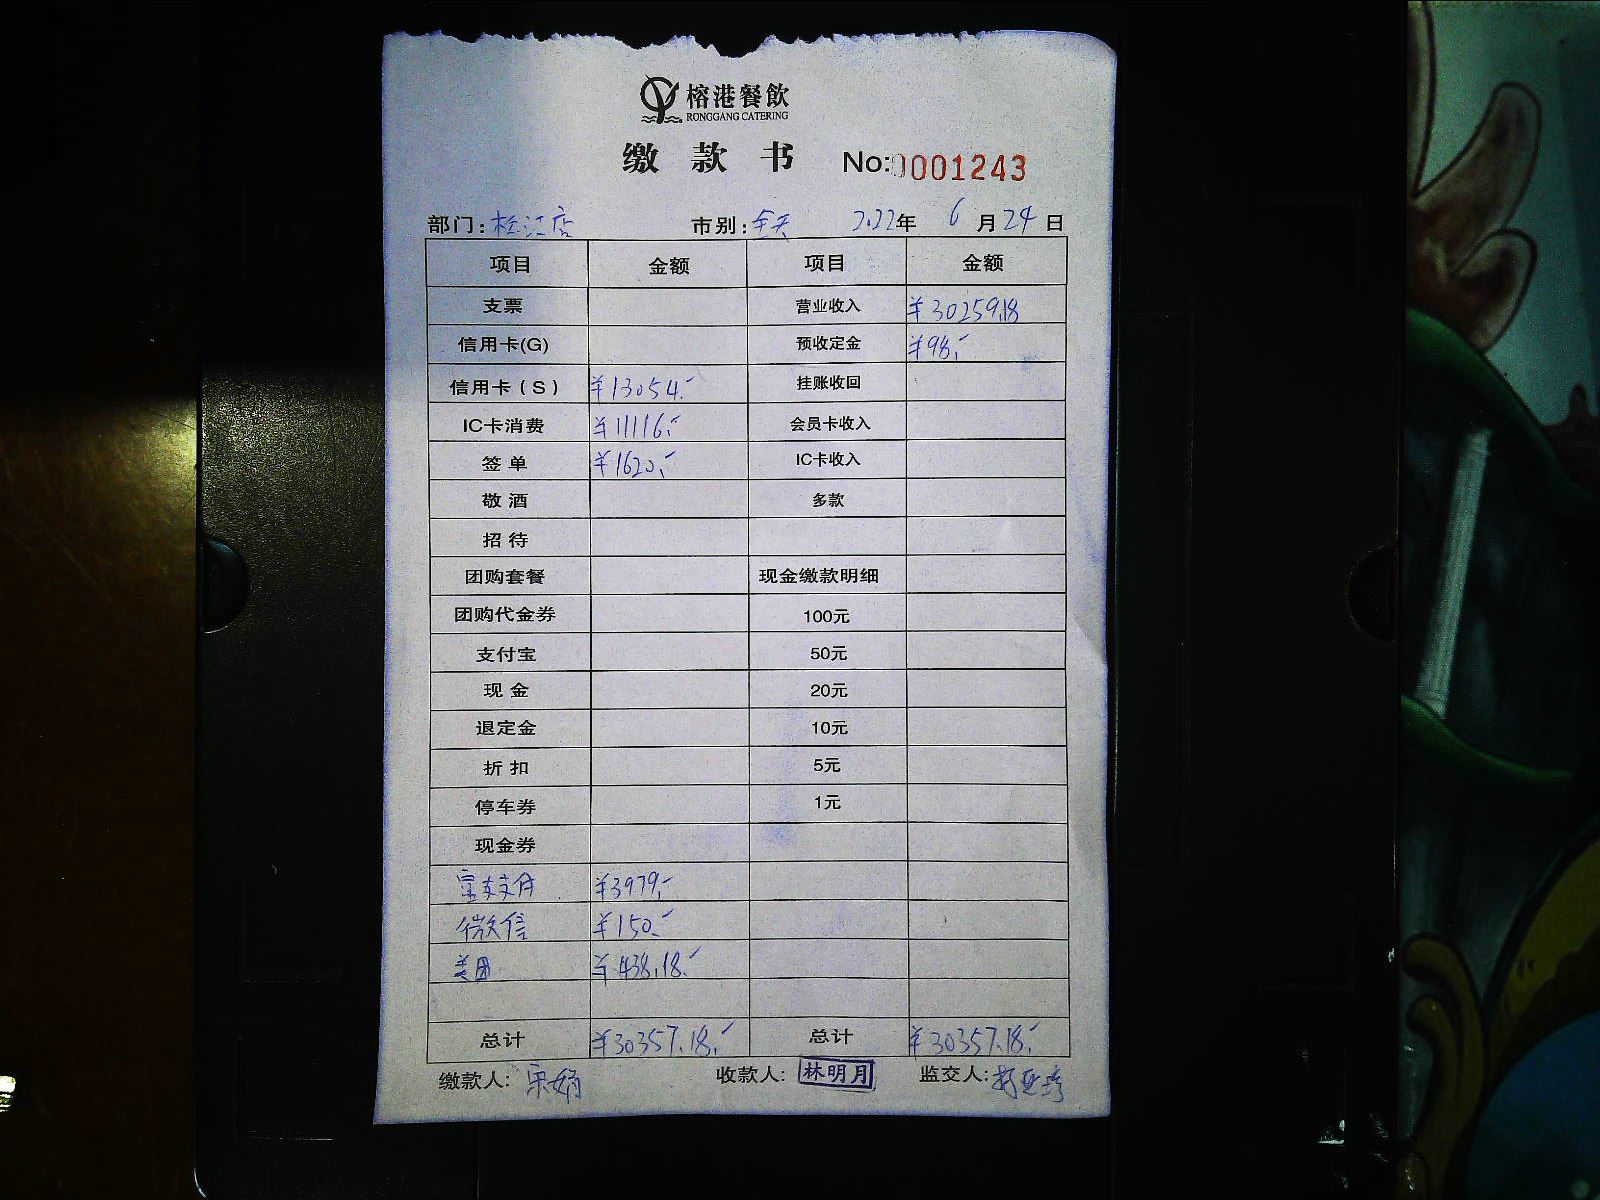 榕港餐飲
RONGGANG CATERING
缴款书 No:0001243
部门:松江店 市别:全天 2022年 6月24日
项目 金额 项目 金额
支票 营业收入 ¥30259.18
信用卡(G) 预收定金 ¥98.-
信用卡(S) ¥13054.- 挂账收回
IC卡消费 ¥11116.- 会员卡收入
签单 ¥1620.- IC卡收入
敬酒 多款
招待
团购套餐 现金缴款明细
团购代金券 100元
支付宝 50元
现金 20元
退定金 10元
折扣 5元
停车券 1元
现金券
支付 ¥3979.-
微信 ¥150.-
美团 ¥438.18.-
总计 ¥30357.18.- 总计 ¥30357.18.-
缴款人:宋娟 收款人:林明月 监交人: